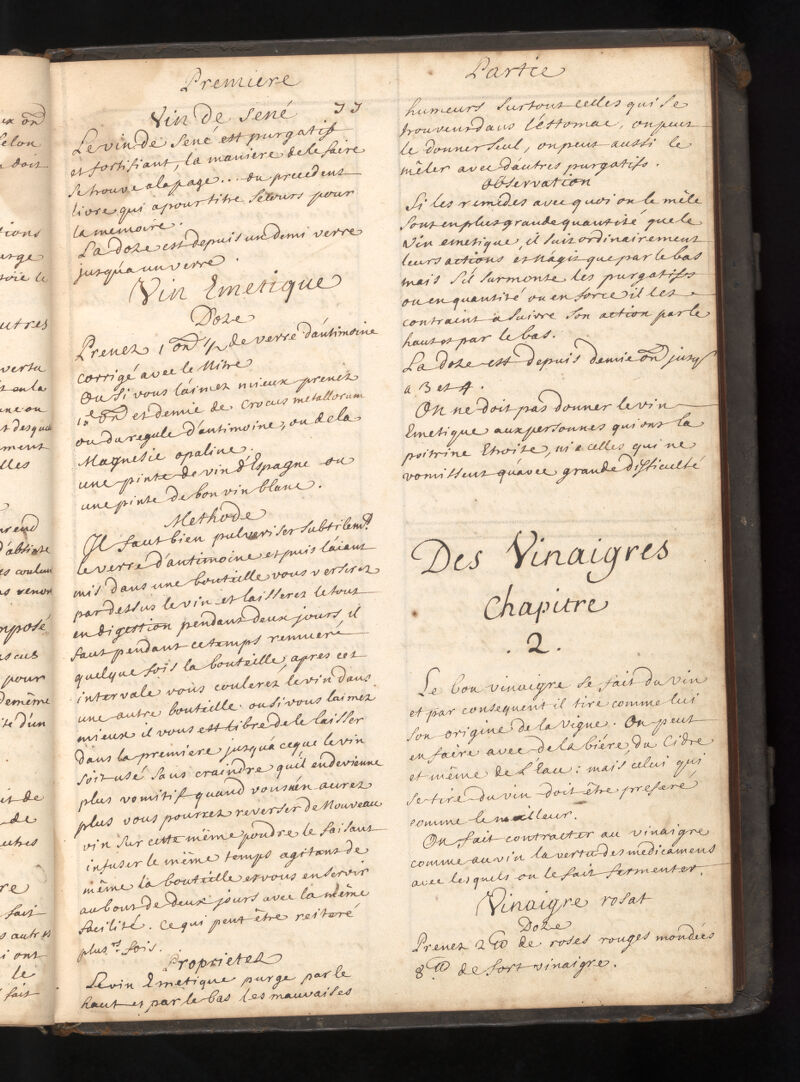 Premiere
Vin de sené
33
Le vin de sené est purgatif
et fortifiant, la maniere de le faire
se trouve a la page... du precedent
livre qui a pour titre secours pour
la memoire.
La doze est depuis un demi verre
jusqu'a un verre.
Vin Emetique
Doze
Prenez 1 on 1/2 de verre d'antimoine
corrigé avec le Nitre
Ou si vous l'aimez mieux prenez
on et demie de Crocus metallorum
ou du regule d'antimoine, ou de la
Magnesie opaline.
une pinte de vin d'Espagne ou
une pinte de bon vin blanc.
Methode
Il faut bien pulveriser subtilemt
le verre d'antimoine et puis l'aiant
mis dans une bouteille vous verserez
par dessus le vin et laisserez le tout
en digestion pendant deux jours, il
faut pendant ce temps remuëré
quelque fois la bouteille, apres cet
intervale vous coulerez le vin dans
une autre bouteille. ou si vous l'aimez
mieux il vous est libre de le laisser
dans la premiere jusqu'a ce que le vin
soit usé sans craindre qu'il en devienne
plus vomitif quand vous n'en aurez
plus vous pourrez reverser de Nouveau
vin sur cette même poudre le faisant
infuser le même temps agitant de
même la bouteille et vous en servir
au bout de deux jours avec la même
facilité. Ce qui peut être reiteré
plusrs fois.
Proprietez
Le vin Emetique purge par le
haut et par le bas les mauvaises
Partie
humeurs surtout celles qui se
trouvent dans l'éstomac, on peut
le donner seul, on peut aussi le
mêler avec d'autres purgatifs.
Observation
Si les remedes avec quoi on le mêle
sont en plus grande quantité que le
vin emetique, il suit ordinairement
leurs actions et n'agit que par le bas
mais s'il surmonte les purgatifs
ou en quantité ou en force il les
contraint à suivre son action par le
haut et par le bas.
La doze est depuis demie on jusq
a 3 et 4.
On ne doit pas donner le vin
Emetique aux personnes qui ont la
poitrine Etroite, ni a celles qui ne
vomissent qu'avec grande difficulté
Des Vinaigres
Chapitre
. 2 .
Le bon vinaigre se fait du vin
et par consequent il tire comme lui
son origine de la vigne. On peut
en faire avec de la biére, du Cidre
et même de l'Eau: mais celui qui
se tire du vin doit être preferé
comme le meilleur.
On fait contracter au vinaigre
comme au vin la vertu des medicamens
avec lesquels on le fait fermenter.
Vinaigre rosat
Doze
Prenez 2 de roses rouges mondées
8 de fort vinaigre.